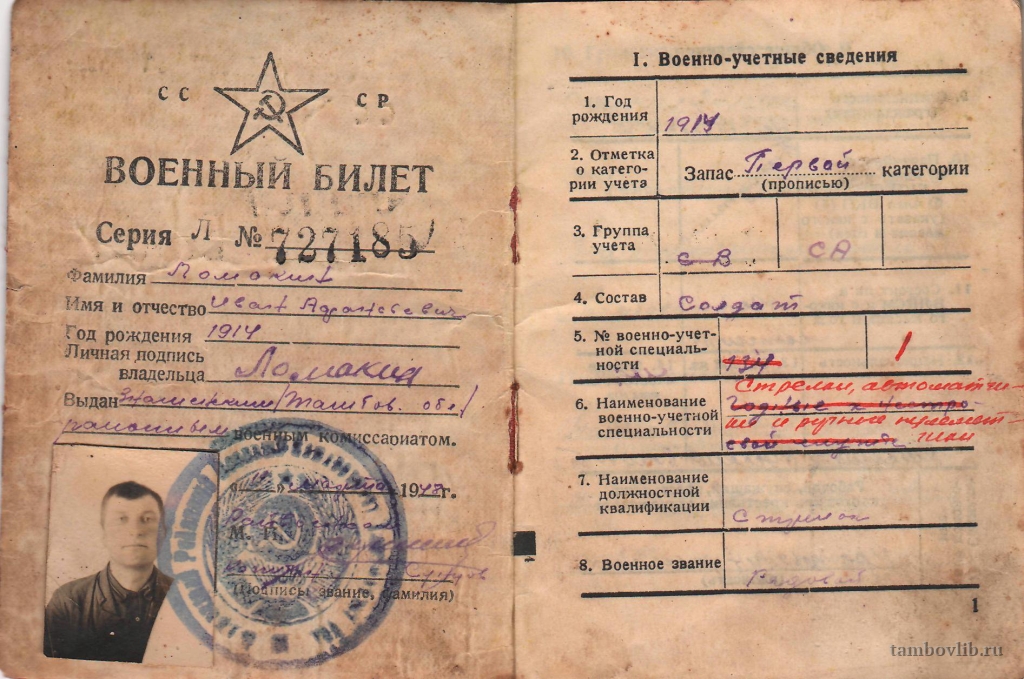 СС СР
ВОЕННЫЙ БИЛЕТ
Серия Л № 727185
Фамилия Ломакин
Имя и отчество Иван
Год рождения 1914
Личная подпись
владельца Ломакин
Выдан Тамбов. обл.
районным военным комиссариатом.
марта 1948 г.
М. П.
(Подпись, звание, фамилия)
I. Военно-учетные сведения
1. Год
рождения 1914
2. Отметка
о катего-
рии учета
Запас Первой категории
(прописью)
3. Группа
учета
с В СА
4. Состав Солдат
5. № военно-учет-
ной специаль-
ности
134 1
6. Наименование
военно-учетной
специальности
Стрелки, автоматчи-
Годные к нестро-
ки и ручные пулемет-
евой службе чики
7. Наименование
должностной
квалификации
Стрелок
8. Военное звание Рядовой
1
tambovlib.ru